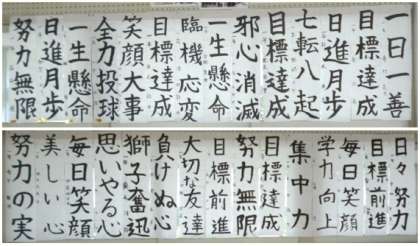 一日一善
目標達成
日進月歩
七転八起
目標達成
邪心消滅
一生懸命
臨機応変
目標達成
笑顔大事
全力投球
一生懸命
日進月歩
努力無限
日々努力
目標前進
毎日笑顔
学力向上
集中力
目標達成
努力無限
目標前進
大切な友達
負けぬ心
獅子奮迅
思いやる心
毎日笑顔
美しい心
努力の実